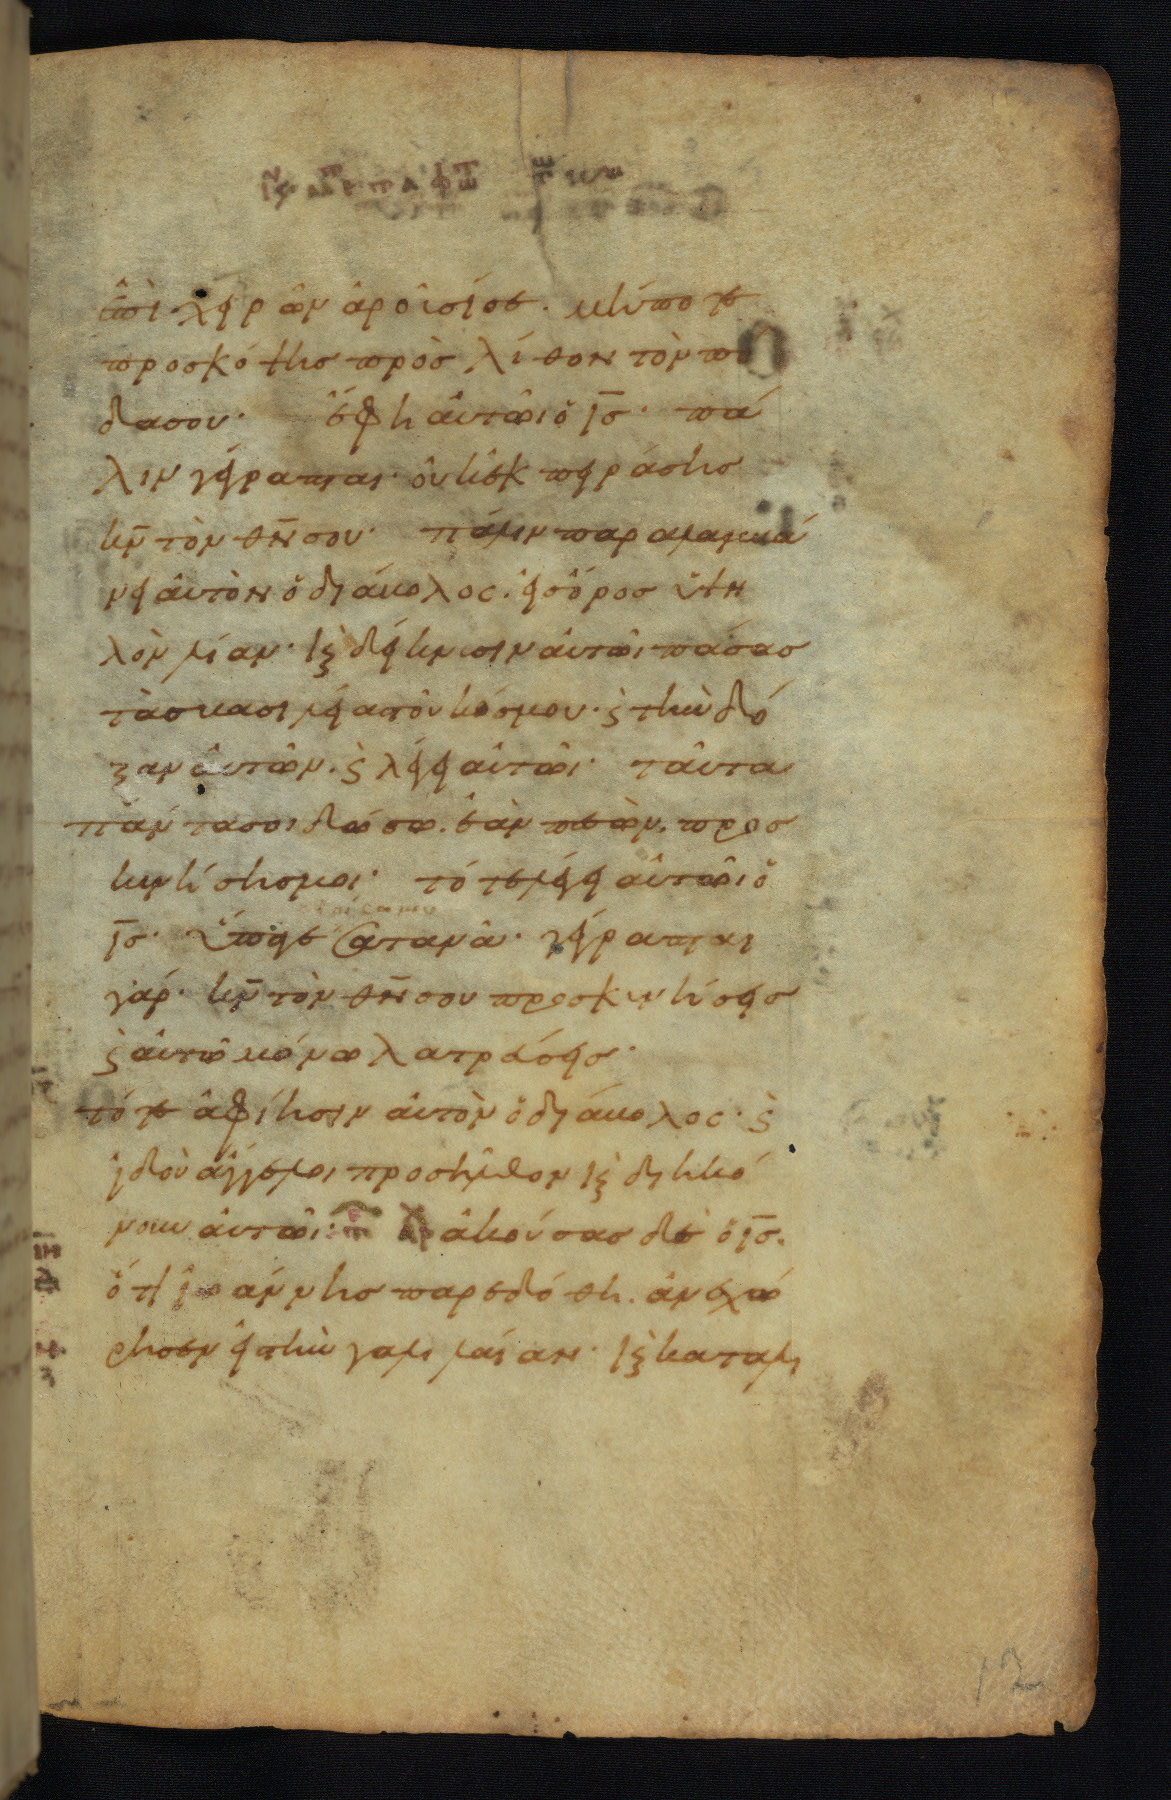 ἐπὶ χειρῶν ἀροῦσί σε. μήποτε
προσκόψης πρὸς λίθον τὸν πό
δα σου. ἔφη αὐτῶι ὁ ι̅ς̅. πά
λιν γέγραπται. οὐκ ἐκπειράσεις
κ̅ν̅ τὸν θ̅ν̅ σου. πάλιν παραλαμβά
νει αὐτὸν ὁ διάβολος. εἰς ὄρος ὑψη
λὸν λίαν. καὶ δείκνυσιν αὐτῶι πάσας
τὰς βασιλείας τοῦ κόσμου. καὶ τὴν δό
ξαν αὐτῶν. καὶ λέγει αὐτῶι. ταῦτα
πάντα σοι δώσω. ἐὰν πεσὼν. προσ
κυνήσης μοι. τότε λέγει αὐτῶι ὁ
ι̅ς̅. ὕπαγε σατανᾶ. γέγραπται
γάρ. κ̅ν̅ τὸν θ̅ν̅ σου προσκυνήσεις
καὶ αὐτῶ μόνω λατρεύσεις.
τότε ἀφίησιν αὐτὸν ὁ διάβολος. καὶ
ἰδοὺ ἄγγελοι προσῆλθον καὶ διηκό
νουν αὐτῶι. ἀκούσας δὲ ὁ ι̅ς̅.
ὅτι ἰωάννης παρεδόθη. ἀνεχώ
ρησεν εἰς τὴν γαλιλαίαν. καὶ καταλι
12